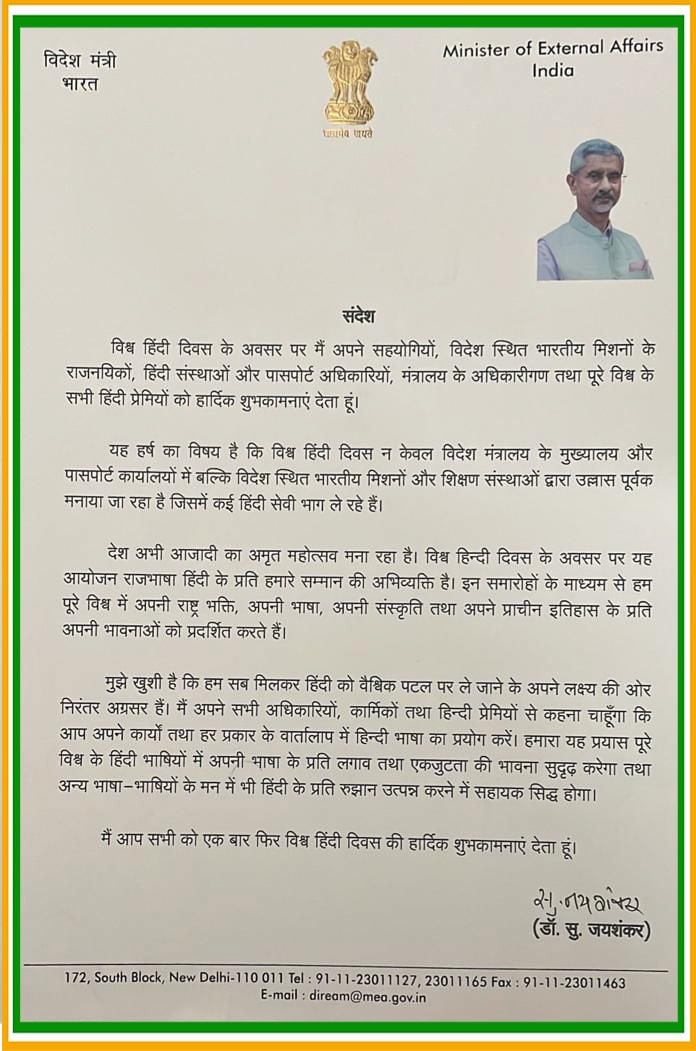 विदेश मंत्री
भारत
सत्यमेव जयते
Minister of External Affairs
India
संदेश
विश्व हिंदी दिवस के अवसर पर मैं अपने सहयोगियों, विदेश स्थित भारतीय मिशनों के
राजनयिकों, हिंदी संस्थाओं और पासपोर्ट अधिकारियों, मंत्रालय के अधिकारीगण तथा पूरे विश्व के
सभी हिंदी प्रेमियों को हार्दिक शुभकामनाएं देता हूं।
यह हर्ष का विषय है कि विश्व हिंदी दिवस न केवल विदेश मंत्रालय के मुख्यालय और
पासपोर्ट कार्यालयों में बल्कि विदेश स्थित भारतीय मिशनों और शिक्षण संस्थाओं द्वारा उल्लास पूर्वक
मनाया जा रहा है जिसमें कई हिंदी सेवी भाग ले रहे हैं।
देश अभी आजादी का अमृत महोत्सव मना रहा है। विश्व हिन्दी दिवस के अवसर पर यह
आयोजन राजभाषा हिंदी के प्रति हमारे सम्मान की अभिव्यक्ति है। इन समारोहों के माध्यम से हम
पूरे विश्व में अपनी राष्ट्र भक्ति, अपनी भाषा, अपनी संस्कृति तथा अपने प्राचीन इतिहास के प्रति
अपनी भावनाओं को प्रदर्शित करते हैं।
मुझे खुशी है कि हम सब मिलकर हिंदी को वैश्विक पटल पर ले जाने के अपने लक्ष्य की ओर
निरंतर अग्रसर हैं। मैं अपने सभी अधिकारियों, कार्मिकों तथा हिन्दी प्रेमियों से कहना चाहूँगा कि
आप अपने कार्यों तथा हर प्रकार के वार्तालाप में हिन्दी भाषा का प्रयोग करें। हमारा यह प्रयास पूरे
विश्व के हिंदी भाषियों में अपनी भाषा के प्रति लगाव तथा एकजुटता की भावना सुदृढ़ करेगा तथा
अन्य भाषा-भाषियों के मन में भी हिंदी के प्रति रुझान उत्पन्न करने में सहायक सिद्ध होगा।
मैं आप सभी को एक बार फिर विश्व हिंदी दिवस की हार्दिक शुभकामनाएं देता हूं।
सु. जयशंकर
(डॉ. सु. जयशंकर)
172, South Block, New Delhi-110 011 Tel : 91-11-23011127, 23011165 Fax : 91-11-23011463
E-mail : diream@mea.gov.in